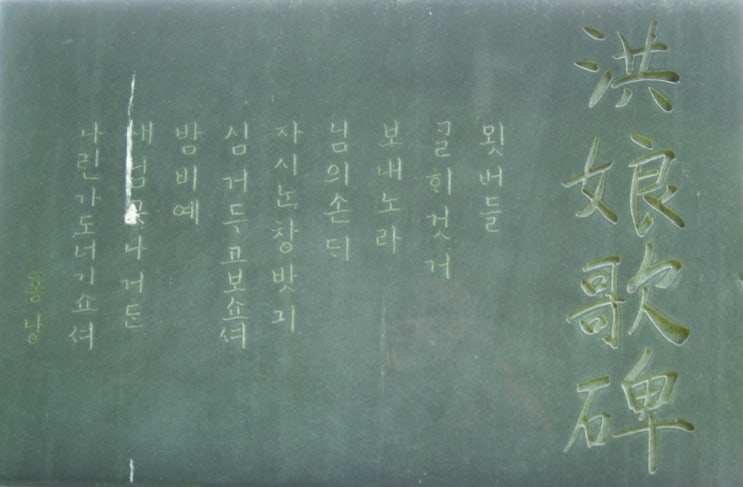 洪娘歌碑
묏버들
ᄀᆞᆯ히것거
보내노라
님의손ᄃᆡ
자시ᄂᆞᆫ창밧긔
심거두고보쇼셔
밤비예
새닙곳나거든
나린가도너기쇼셔
홍낭